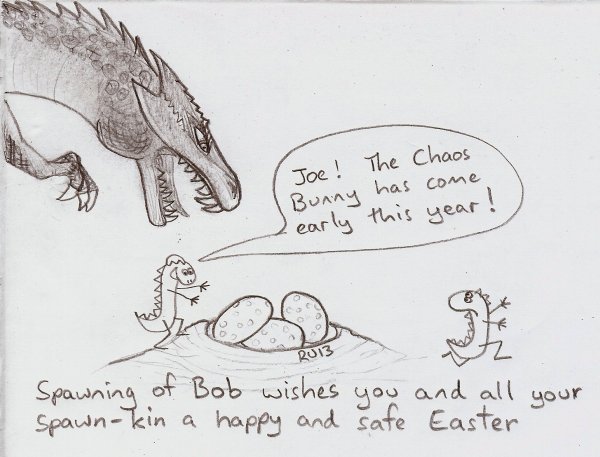 Joe! The Chaos
Bunny has come
early this year!
RU13
Spawning of Bob wishes you and all your
spawn-kin a happy and safe Easter